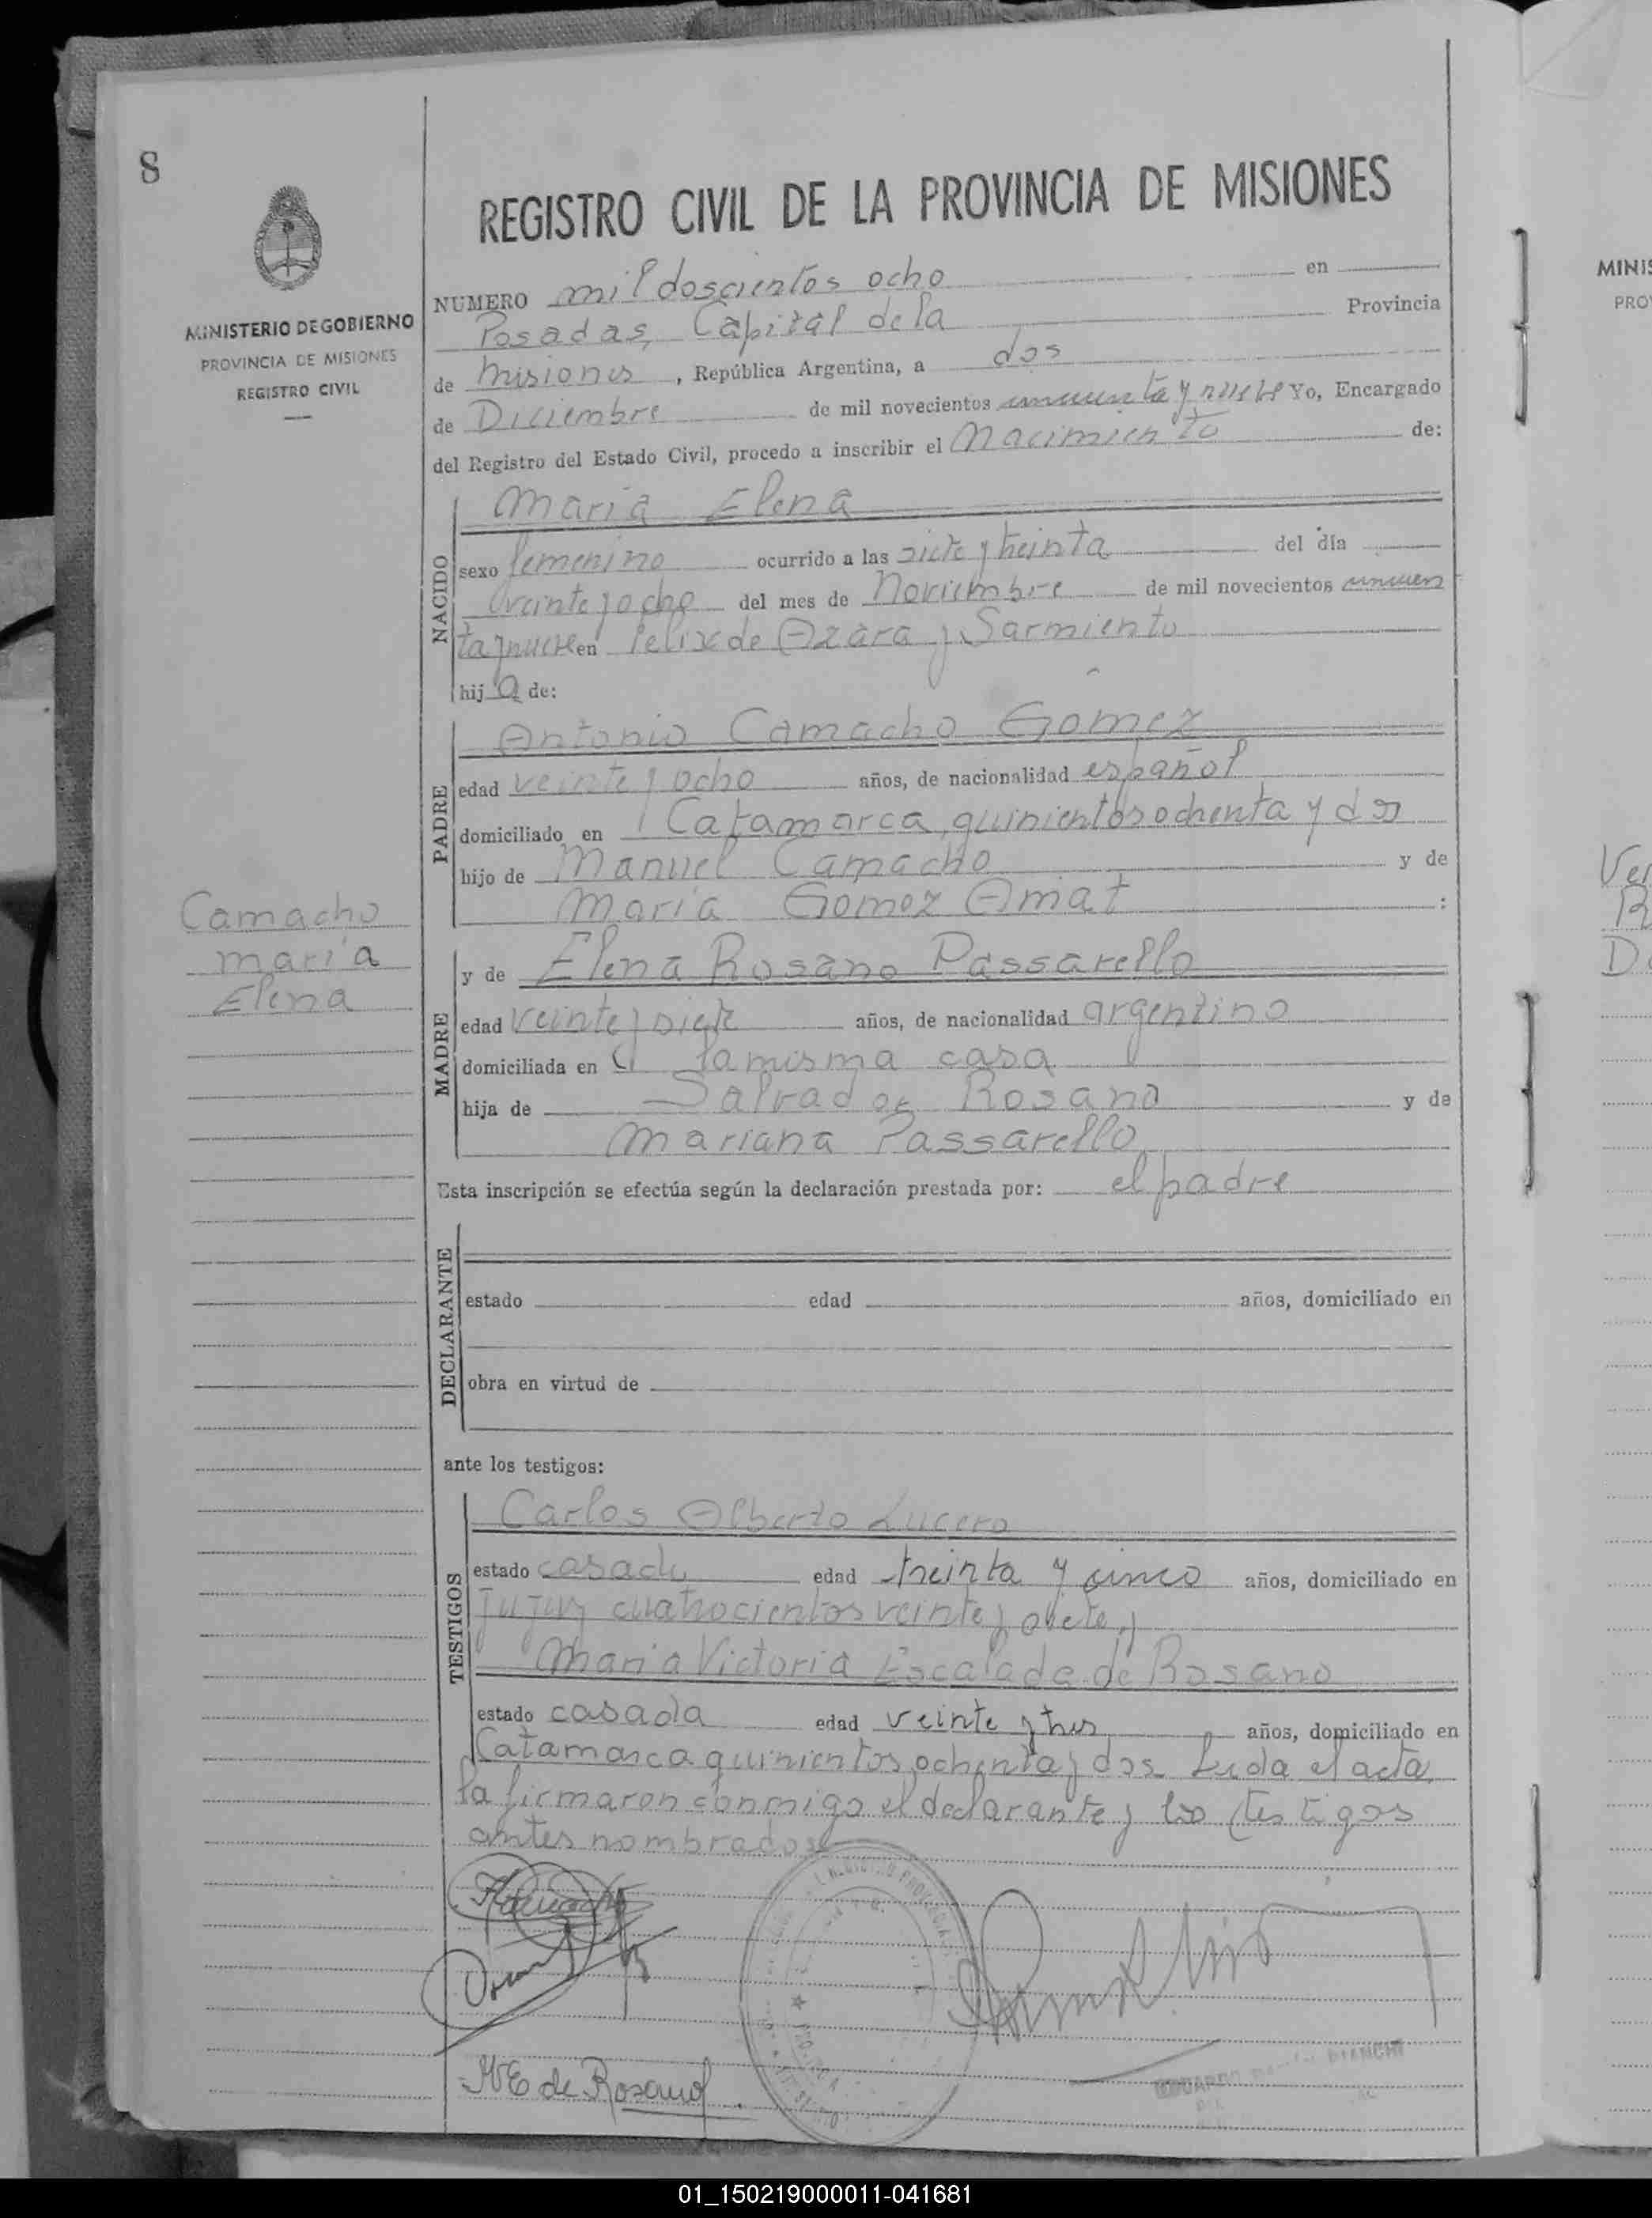 8
MINISTERIO DE GOBIERNO
PROVINCIA DE MISIONES
REGISTRO CIVIL
REGISTRO CIVIL DE LA PROVINCIA DE MISIONES
NUMERO mil doscientos ocho en
Posadas, Capital de la Provincia
de Misiones, República Argentina, a dos
de Diciembre de mil novecientos cincuenta y nueve Yo, Encargado
del Registro del Estado Civil, procedo a inscribir el Nacimiento de:
NACIDO
Maria Elena
sexo femenino ocurrido a las siete y treinta del día
veinte y ocho del mes de Noviembre de mil novecientos cincuen
ta y nueve en Felix de Azara y Sarmiento
hija de:
PADRE
Antonio Camacho Gomez
edad veinte y ocho años, de nacionalidad español
domiciliado en Catamarca quinientos ochenta y dos
hijo de Manuel Camacho y de
Maria Gomez Amat :
Camacho
Maria
Elena
MADRE
y de Elena Rosano Passarello
edad veinte y siete años, de nacionalidad argentino
domiciliada en la misma casa
hija de Salvador Rosano y de
Mariana Passarello
Esta inscripción se efectúa según la declaración prestada por: el padre
DECLARANTE
estado edad años, domiciliado en
obra en virtud de
ante los testigos:
TESTIGOS
Carlos Alberto Lucero
estado casado edad treinta y cinco años, domiciliado en
Jujuy cuatrocientos veinte y siete, y
Maria Victoria Escalada de Rosano
estado casada edad veinte y tres años, domiciliado en
Catamarca quinientos ochenta y dos. Leida el acta
la firmaron conmigo el declarante y los testigos
antes nombrados
MVE de Rosano
BIANCHI
MINIS
PRO
Ver
01_150219000011-041681